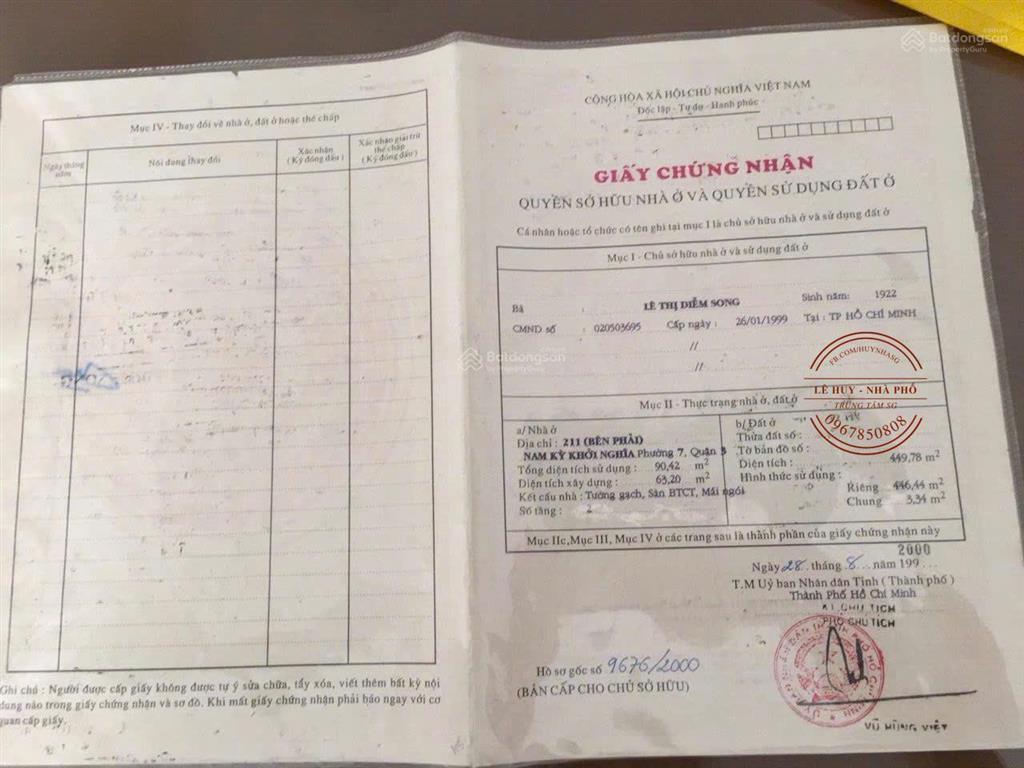 Mục IV - Thay đổi về nhà ở, đất ở hoặc thế chấp
Ngày tháng năm
Nội dung thay đổi
Xác nhận (Ký đóng dấu)
Xác nhận giải trừ thế chấp (Ký đóng dấu)
Ghi chú : Người được cấp giấy không được tự ý sửa chữa, tẩy xóa, viết thêm bất kỳ nội
dung nào trong giấy chứng nhận và sơ đồ. Khi mất giấy chứng nhận phải báo ngay với cơ
quan cấp giấy.
Batdongsan
by PropertyGuru
Batdongsan
by PropertyGuru
CỘNG HÒA XÃ HỘI CHỦ NGHĨA VIỆT NAM
Độc lập - Tự do - Hạnh phúc
GIẤY CHỨNG NHẬN
QUYỀN SỞ HỮU NHÀ Ở VÀ QUYỀN SỬ DỤNG ĐẤT Ở
Cá nhân hoặc tổ chức có tên ghi tại mục I là chủ sở hữu nhà ở và sử dụng đất ở
Mục I - Chủ sở hữu nhà ở và sử dụng đất ở
Bà : LÊ THỊ DIỄM SONG Sinh năm: 1922
CMND số : 020503695 Cấp ngày : 26/01/1999 Tại : TP HỒ CHÍ MINH
//
//
FB.COM/HUYNHASG
LÊ HUY - NHÀ PHỐ
TRUNG TÂM SG
0967850808
Mục II - Thực trạng nhà ở, đất ở
a/ Nhà ở
Địa chỉ : 211 (BÊN PHẢI)
NAM KỲ KHỞI NGHĨA Phường 7, Quận 3
Tổng diện tích sử dụng : 90,42 m2
Diện tích xây dựng : 63,20 m2
Kết cấu nhà : Tường gạch, Sàn BTCT, Mái ngói
Số tầng : 2
b/ Đất ở
Thửa đất số :
Tờ bản đồ số :
Diện tích : 449,78 m2
Hình thức sử dụng :
Riêng 446,44 m2
Chung 3,34 m2
Mục IIc, Mục III, Mục IV ở các trang sau là thành phần của giấy chứng nhận này
2000
Ngày 28 tháng 8 năm 199
T.M Uỷ ban Nhân dân Tỉnh ( Thành phố )
Thành Phố Hồ Chí Minh
KT CHỦ TỊCH
PHÓ CHỦ TỊCH
Hồ sơ gốc số 9676/2000
(BẢN CẤP CHO CHỦ SỞ HỮU)
VŨ HÙNG VIỆT